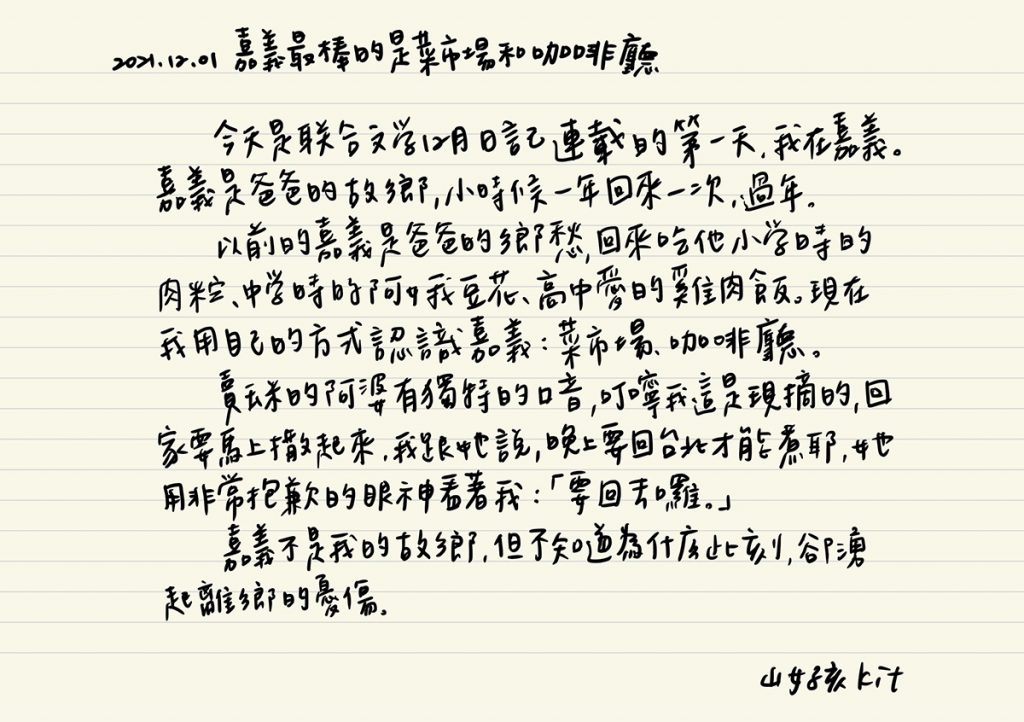 2021.12.01 嘉義最棒的是菜市場和咖啡廳
今天是联合文学12月日記連載的第一天,我在嘉義。
嘉義是爸爸的故鄉,小時候一年回來一次,過年。
以前的嘉義是爸爸的鄉愁,回來吃他小学時的
肉粽、中学時的阿娥豆花、高中愛的雞肉飯。現在
我用自己的方式認識嘉義:菜市場、咖啡廳。
賣玉米的阿婆有獨特的口音,叮嚀我這是現摘的,回
家要馬上撒起來,我跟她說,晚上要回台北才能煮耶,她
用非常抱歉的眼神看著我:「要回去囉。」
嘉義不是我的故鄉,但不知道為什庅此刻,卻湧
起離鄉的憂傷。
山女孩kit